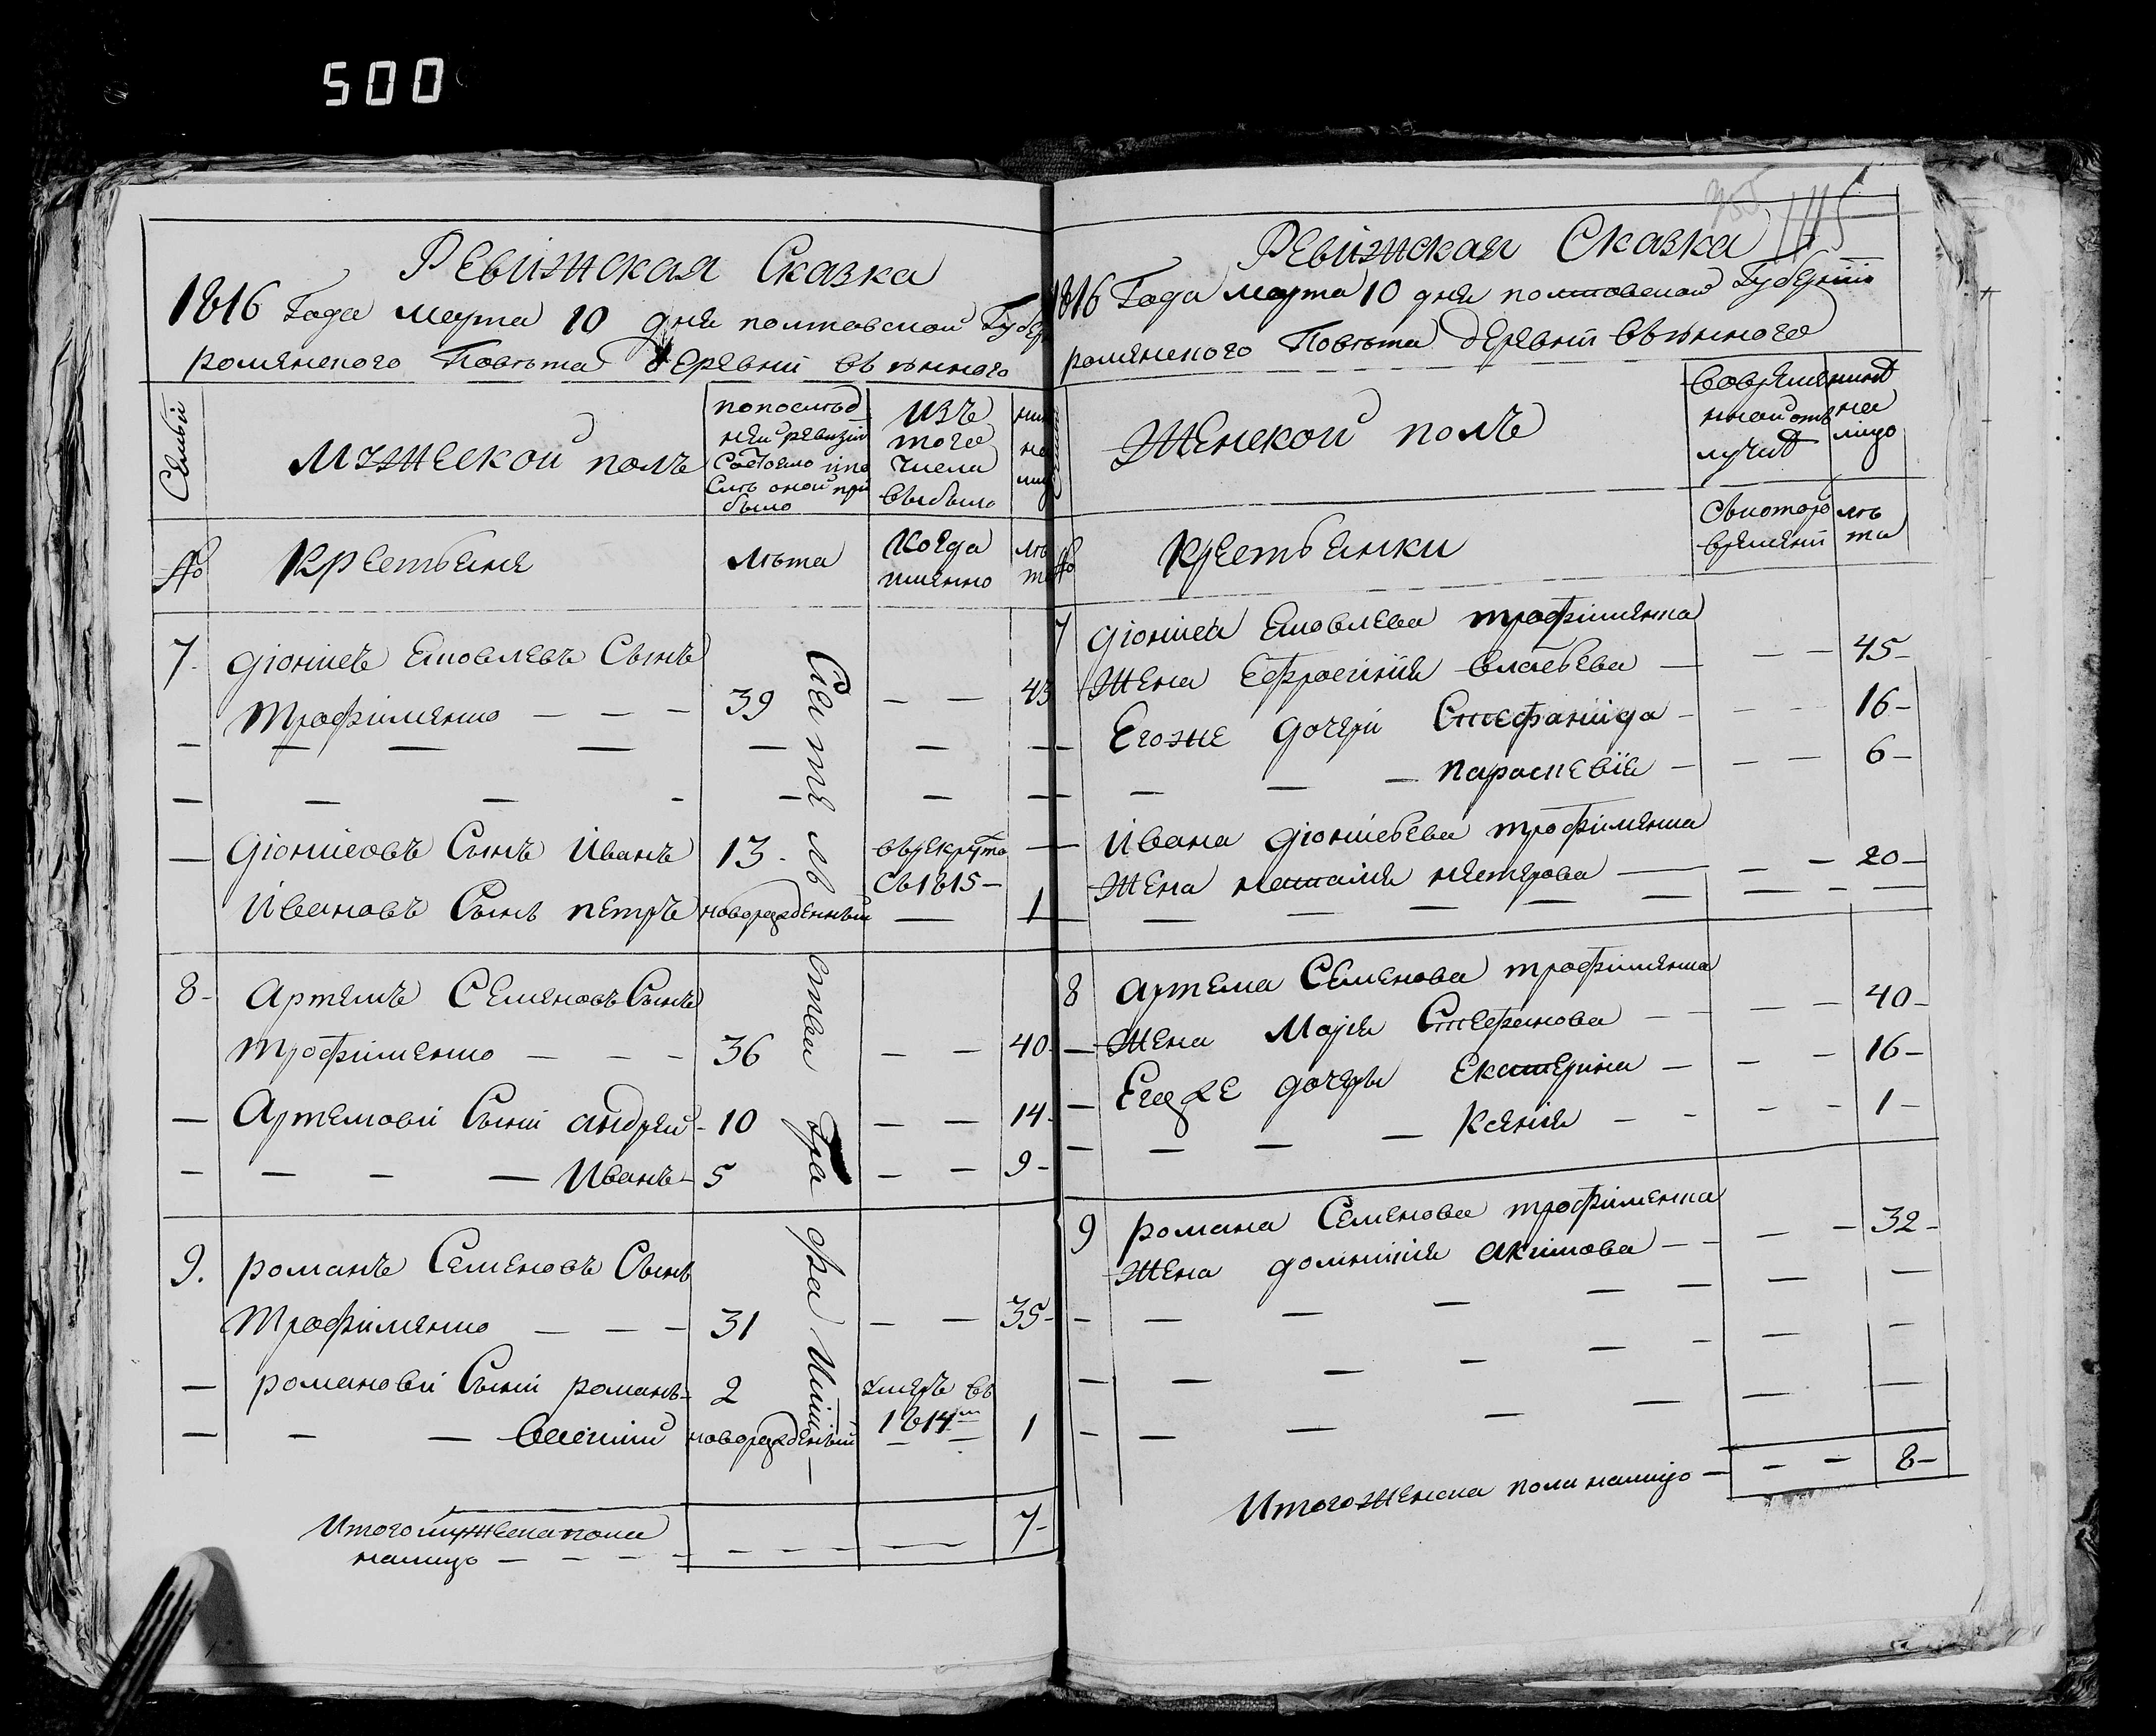 500
355 115
Ревижская Сказка
1816 Года марта 10 дня полтавской Губер
роменского Повѣта деревни
Семьи
мужеской полъ
попослѣд
ней ревизіи
Состояло ипо
слѣ оной при
было
изъ
того
числа
выбыло
ны
не
на
лицо
№
Крестьяне
лѣта
Когда
имянно
лѣ
та
7. Діонисей Яковлевъ Сынъ
трофименко — — — 39 — — 43
— Діонисіовъ Сынъ Иванъ 13 - врекрута
Св1815 —
Ивановъ Сынъ петръ новорожденный — 1
8 - Артемъ Семеновъ Сынъ
трофименко — — — 36 — — 40 -
— Артемовы Сыны андрей - 10 — — 14 -
— — — — Иванъ - 5 — — 9 -
9. романъ Семеновъ Сынъ
трофименко — — — 31 — — 35 -
— романовы Сыны романъ - 2 умеръ въ
1814м
— — — василий новорожденный — — 1
Итого мужеска пола
налицо — — — — 7 -
Ревижская Сказка
1816 Года марта 10 дня полтавской Губерніи
роменского Повѣта деревни
Женской полъ
вовремен
ной отъ
лучкѣ
нынѣ
на
лицо
№
крестьянки
Съкоторо
времяни
лѣ
та
7 Діонисея Яковлева трофименка
жена Ефросинія власьева — — — 45 -
Егоже дочери Стефанида - — — 16 -
— — — параскевія — — — 6 -
— Ивана Діонисьева трофименка
жена наталия нестерова — — — 20 —
8 Артема Семенова трофименка
— жена Марія Стефанова — — — 40 -
— Егоже дочери Екатерина — — — 16 -
— — — — Ксенія — - — — 1 -
9 романа Семенова трофименка
жена домникия акимова — - — — 32 -
Итого женска пола налицо — — — 8 -